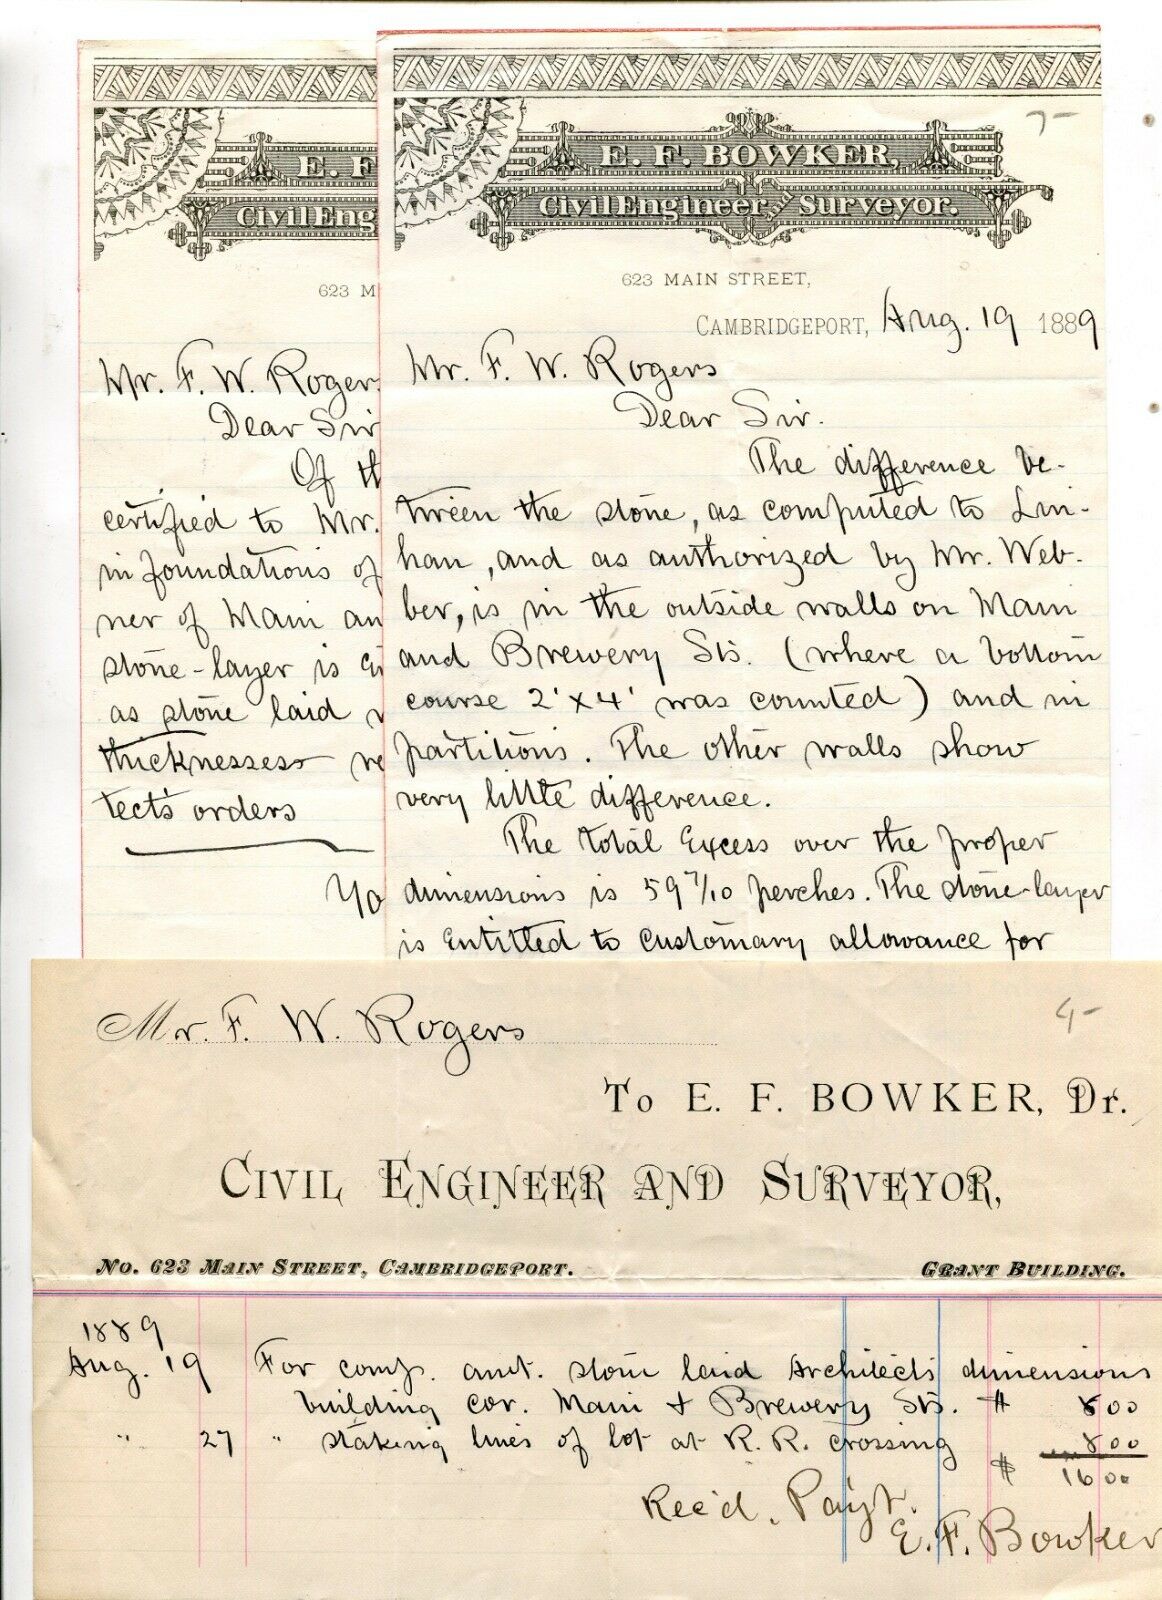 E. F
Civil Eng
623 M
Mr. F. W. Roger
Dear Sir
Of th
certified to Mr.
in foundations of
ner of Main an
stone-layer is
as stone laid
thicknesses
tect's orders
Yo
7-
E. F. BOWKER,
Civil Engineer and Surveyor.
623 MAIN STREET,
CAMBRIDGEPORT, Aug. 19 1889
Mr. F. W. Rogers
Dear Sir.
The difference be-
tween the stone, as computed to Lin-
han, and as authorized by Mr. Web-
ber, is in the outside walls on Main
and Brewery Sts. (where a bottom
course 2' x 4' was counted) and in
partitions. The other walls show
very little difference.
The total excess over the proper
dimensions is 59 7/10 perches. The stone-layer
is entitled to customary allowance for
Mr. F. W. Rogers
To E. F. BOWKER, Dr.
CIVIL ENGINEER AND SURVEYOR,
No. 623 MAIN STREET, CAMBRIDGEPORT. GRANT BUILDING.
1889
Aug. 19 For comp. amt. stone laid Architects dimensions
building cor. Main & Brewery Sts. $ 8 00
" 27 " staking lines of lot at R. R. crossing 8 00
$ 16 00
Rec'd. Pay't.
E. F. Bowker